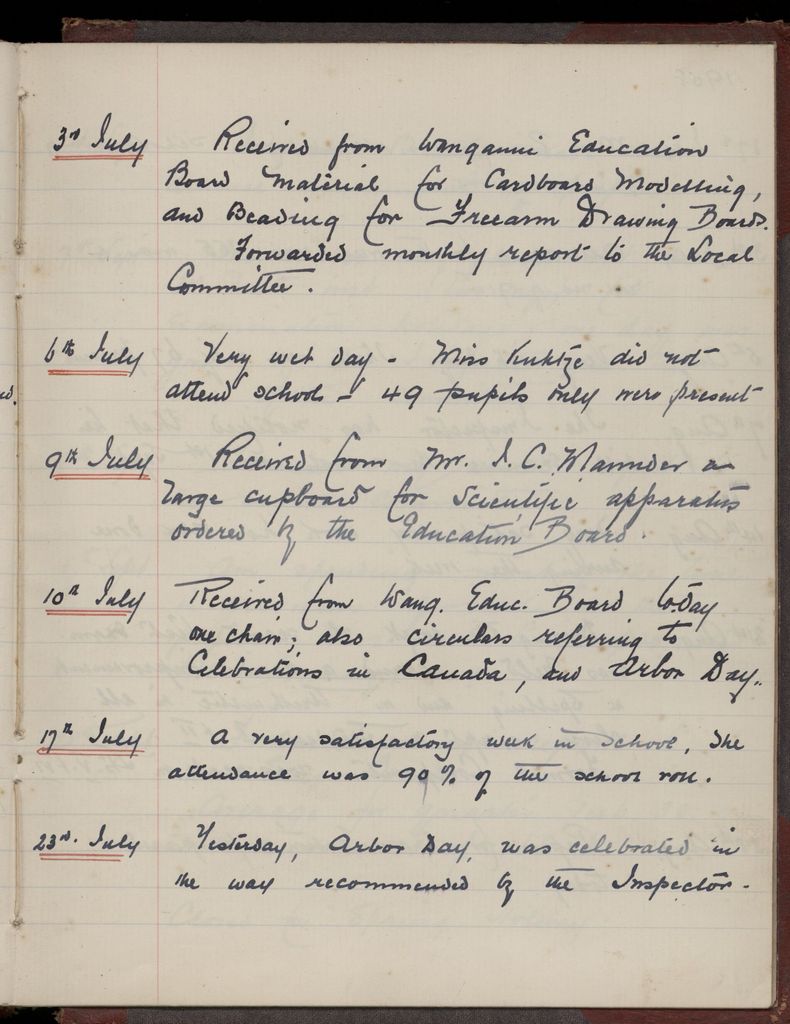 3rd July Received from Wanganui Education
Board material for Cardboard Modelling,
and Beading for Freearm Drawing Boards.
Forwarded monthly report to the Local
Committee.
6th July Very wet day - Miss Kuhtze did not
attend school - 49 pupils only were present
9th July Received from Mr. I. C. Maunder a
large cupboard for Scientific apparatus
ordered by the Education Board.
10th July Received from Wang. Educ. Board to-day
one chair; also circulars referring to
Celebrations in Canada, and Arbor Day.
17th July A very satisfactory week in school. The
attendance was 90% of the school roll.
23rd. July Yesterday, Arbor Day, was celebrated in
the way recommended by the Inspector.